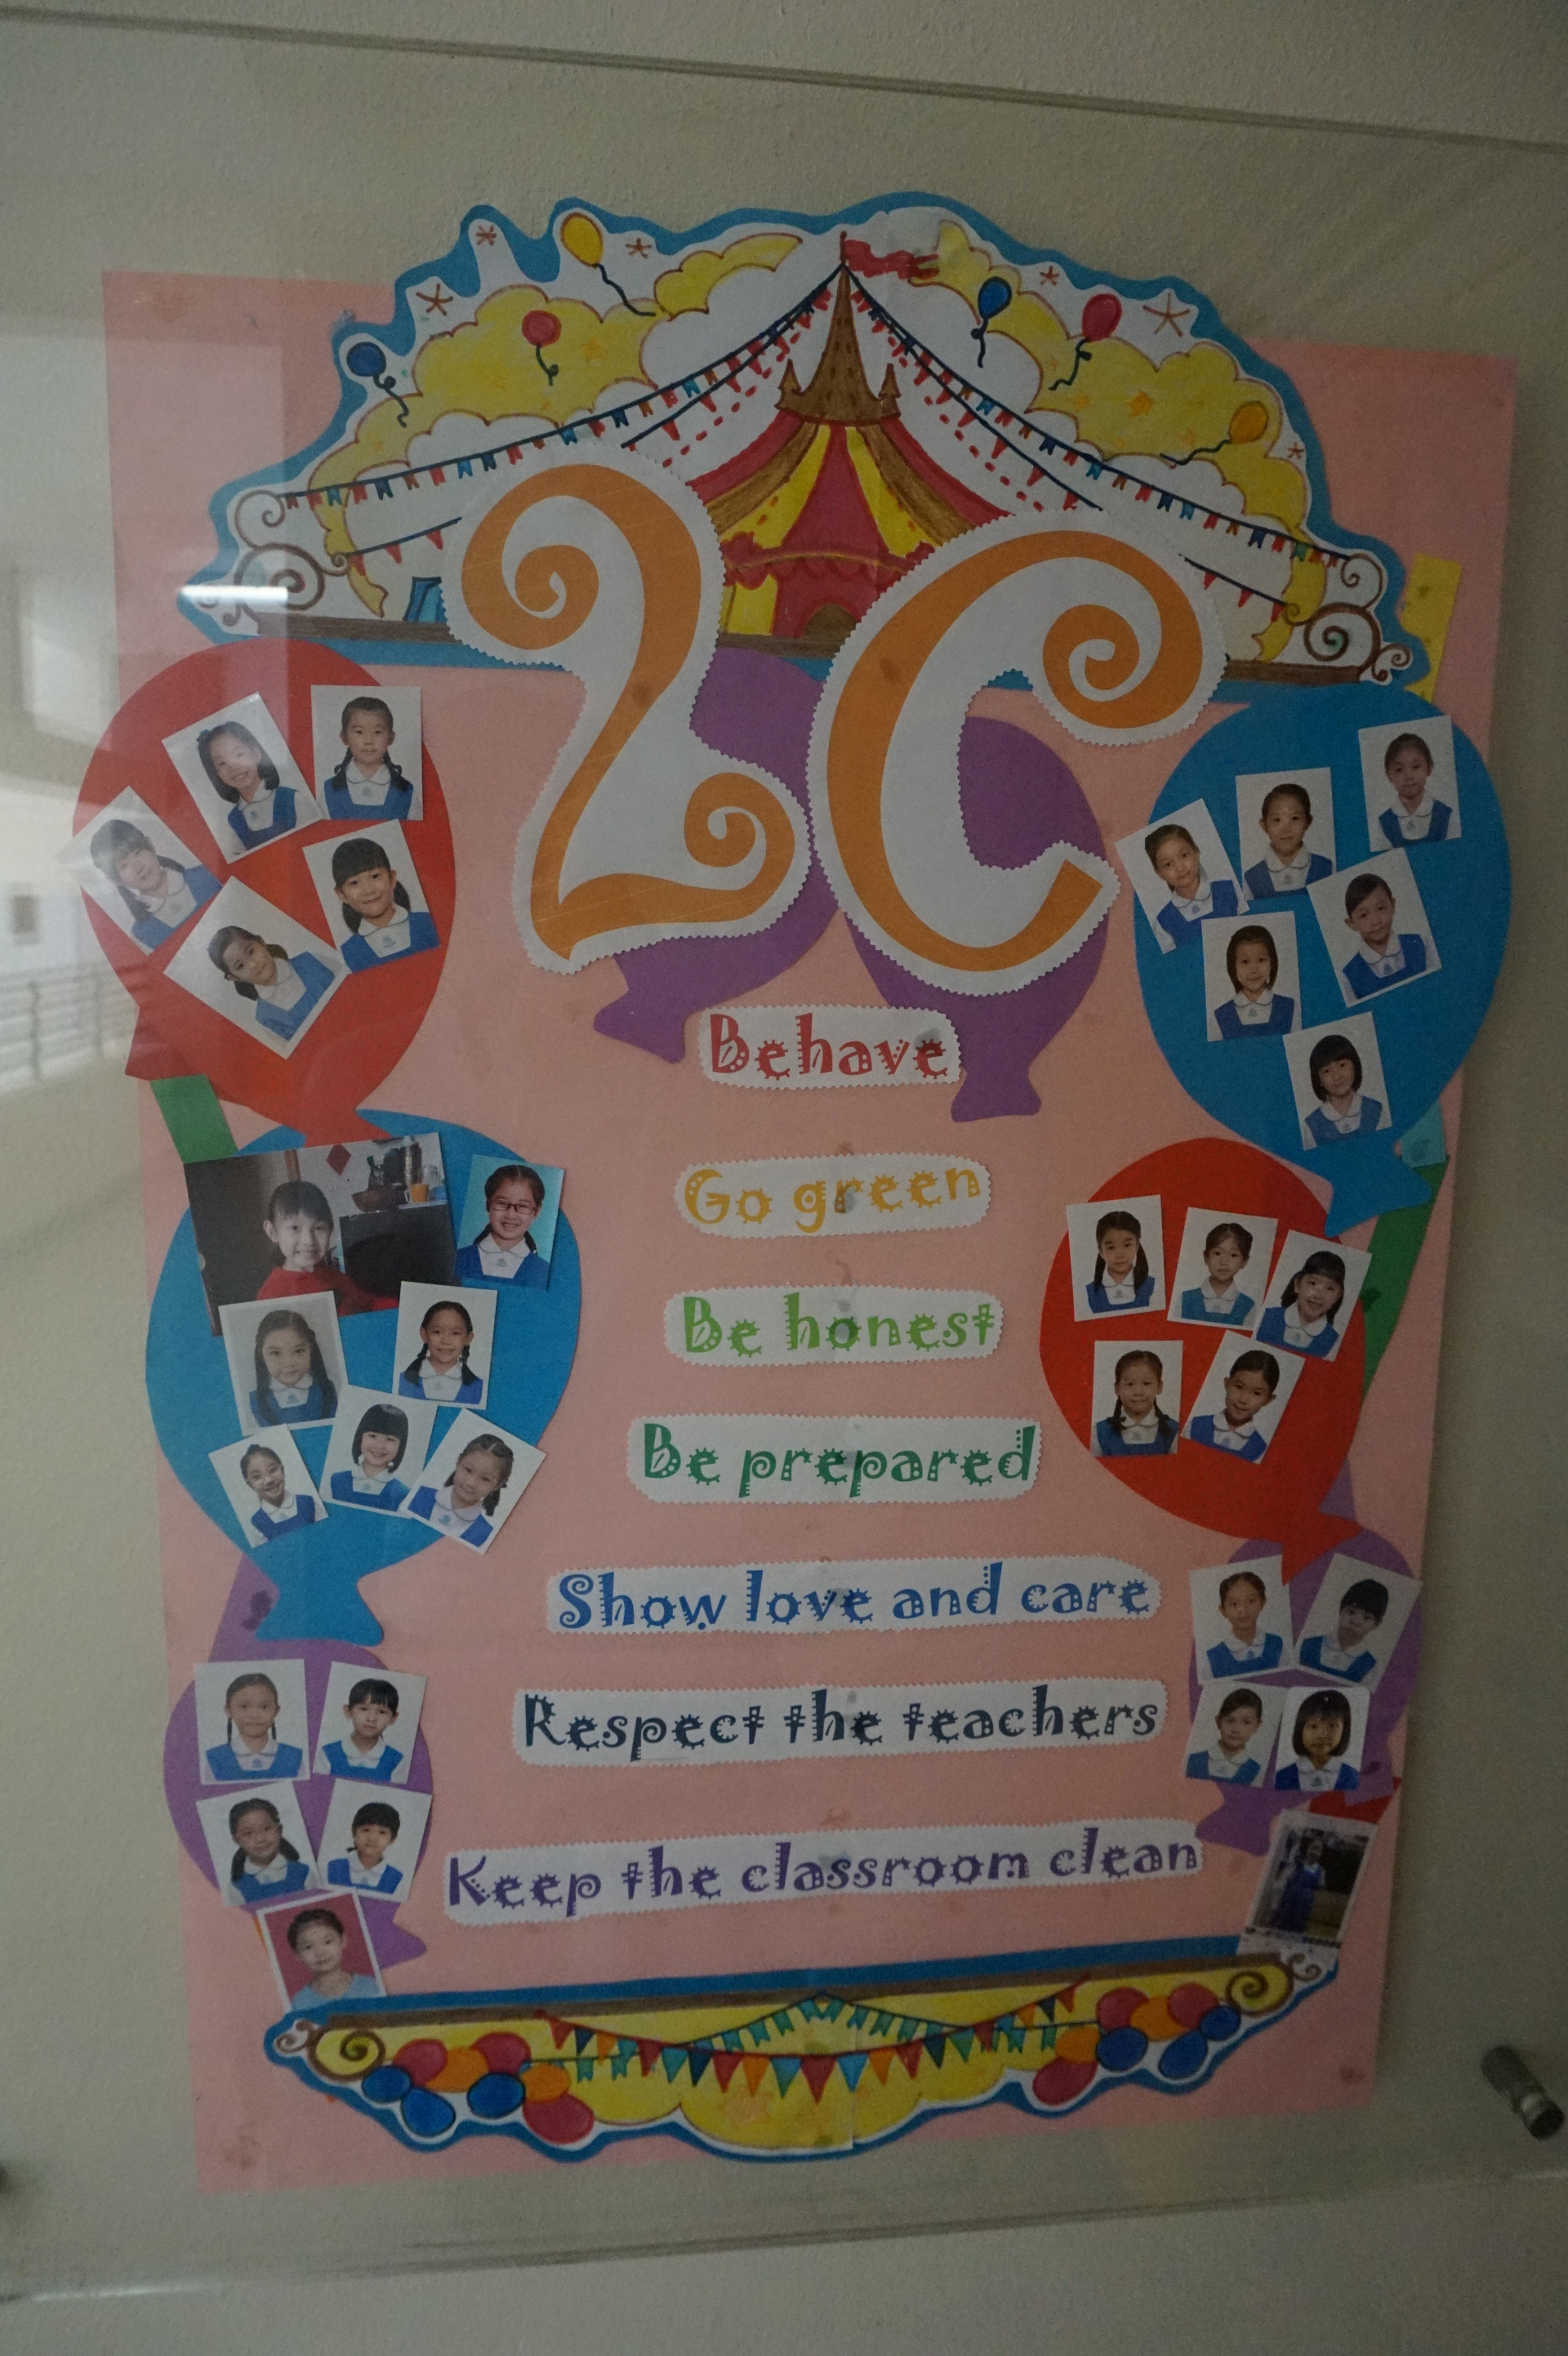 2C
Behave
Go green
Be honest
Be prepared
Show love and care
Respect the teachers
Keep the classroom clean